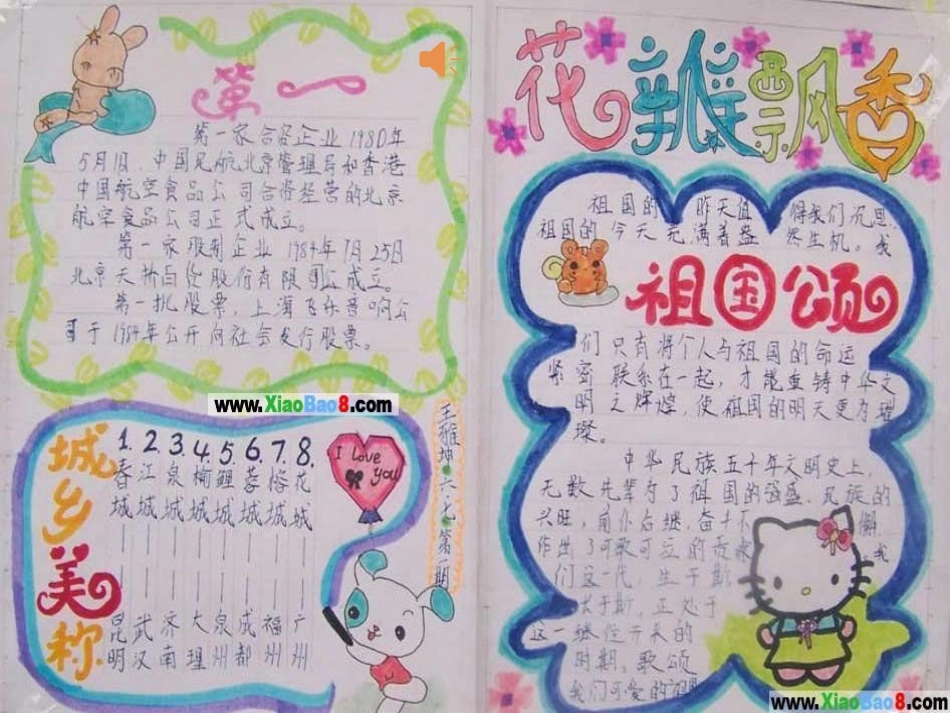 第一
第一家合资企业 1980年
5月1日,中国民航北京管理局和香港
中国航空食品公司合资经营的北京
航空食品公司正式成立。
第一家股制企业 1984年7月25日
北京天桥百货股份有限公司成立。
第一批股票,上海飞乐音响公
司于1984年公开向社会发行股票。
www.XiaoBao8.com
城乡美称
1. 2. 3. 4. 5. 6. 7. 8.
春江泉榆鲤蓉榕花
城城城城城城城城
昆武济大泉成福广
明汉南理州都州州
I love
you
王雅坤 六·七 第一期
花瓣飘香
祖国的 昨天值 得我们沉思.
祖国的 今天充满着盎 然生机。我
祖国颂
们只有将个人与祖国的命运
紧密联系在一起,才能重铸中华文
明之辉煌,使祖国的明天更为璀
璨。
中华民族五十年文明史上,
无数先辈为了祖国的强盛.民族的
兴旺,前仆后继,奋斗不 懈
作出了可歌可泣的贡献 ,我
们这一代,生于斯
长于斯,正处于
这一继往开来的
时期。歌颂
我们可爱的祖国
www.XiaoBao8.com